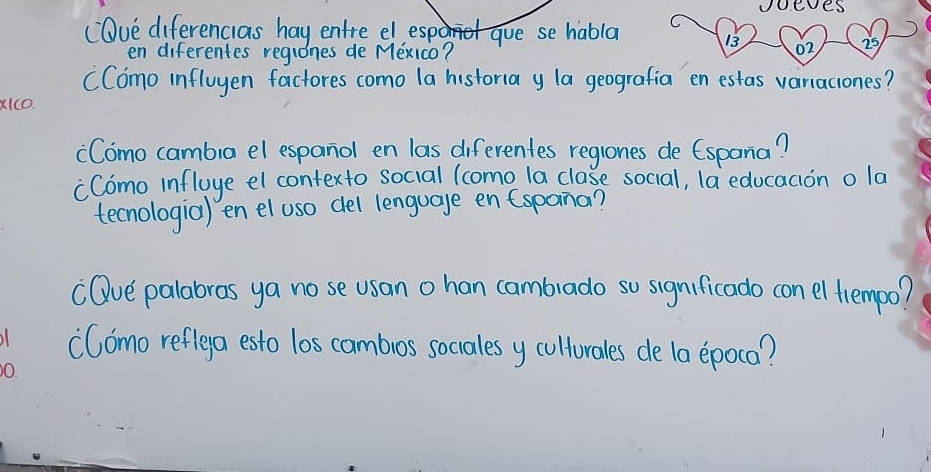 Jueves
13 02 25
¿Qué diferencias hay entre el español que se habla
en diferentes regiones de México?
¿Cómo influyen factores como la historia y la geografía en estas variaciones?
XICO.
¿Cómo cambia el español en las diferentes regiones de España?
¿Cómo influye el contexto social (como la clase social, la educación o la
tecnología) en el uso del lenguaje en España?
¿Qué palabras ya no se usan o han cambiado su significado con el tiempo?
¿Cómo refleja esto los cambios sociales y culturales de la época?
ol
oo.